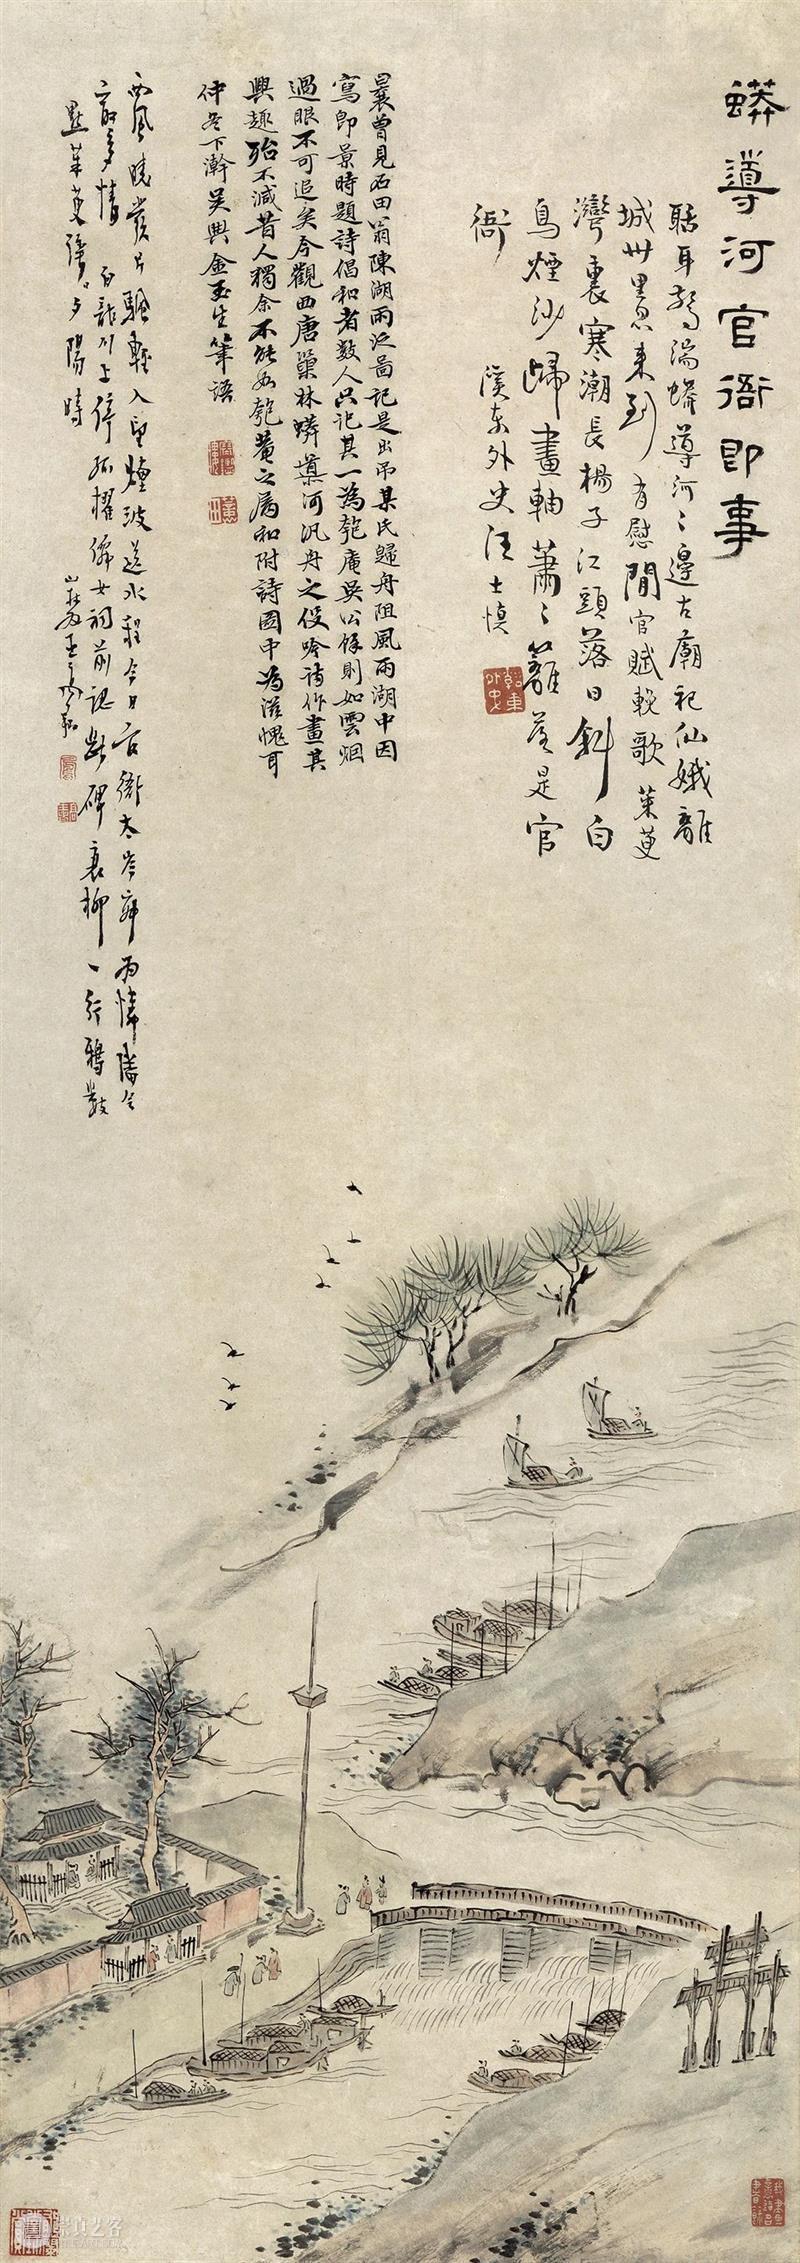 蟒導河官衙即事
聒耳驚湍蟒導河〻邊古廟祀仙娥離
城卅里忽来到肯慰閒官賦輓歌茱萸
灣裏寒潮長楊子江頭落日斜白
鳥煙沙歸畫軸蕭〻籬落是官
衙
溪東外史汪士慎
曩曽見石田翁陳湖雨泛啚記是出吊某氏歸舟阻風雨湖中因
寫即景時題詩倡和者数人只記其一為匏庵吳公餘則如雲烟
過眼不可追矣今觀西唐巢林蟒導河汎舟之役吟詩作畫其
興趣殆不減昔人獨余不能如匏菴之属和附詩圖中為滋愧耳
仲冬下澣吴興金玉生筆語
西風曉發片颿輕入望煙波送水程今日官衙太岑寂
多情
白龍川上停孤櫂僊女祠前認断碑衰柳一行鴉數
點茱萸灣夕陽時
崇真艺客